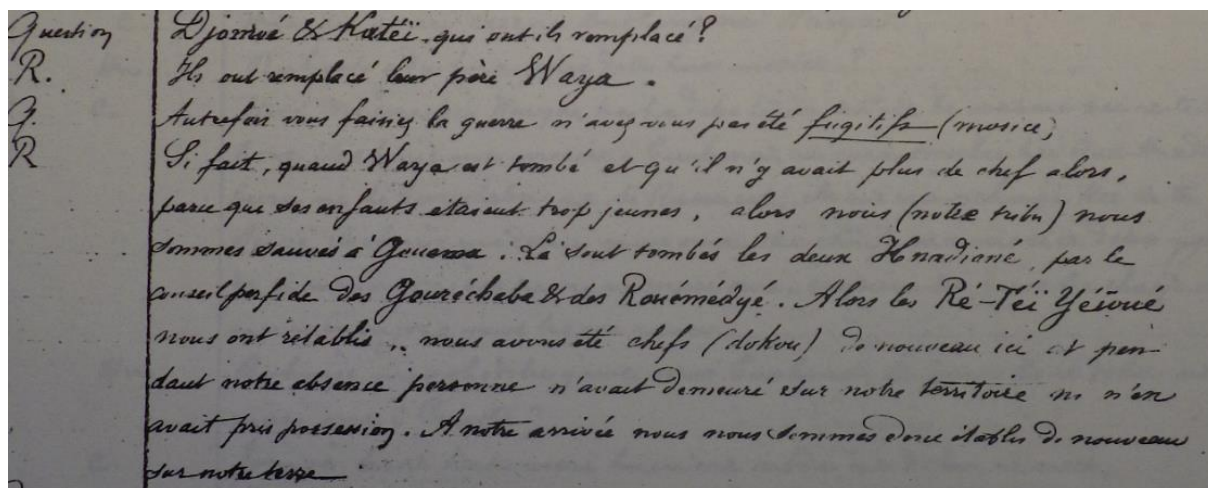 Question Djomoé & Katéï, qui ont ils remplacé?
R. Ils ont remplacé leur père Waya.
Q. Autrefois vous faisiez la guerre n'avez vous pas été fugitifs (mosice)
R Si fait, quand Waya est tombé et qu'il n'y avait plus de chef alors,
parce que ses enfants étaient trop jeunes, alors nous (notre tribu) nous
sommes sauvés à Gouema. Là sont tombés les deux Hnadioné, par le
conseil perfide des Gouréchaba & des Rouémédyé. Alors les Ré-Téï Yéïoué
nous ont rétablis, nous avons été chefs (dokou) de nouveau ici et pen-
dant notre absence personne n'avait demeuré sur notre territoire ni n'en
avait pris possession. A notre arrivée nous nous sommes donc établis de nouveau
sur notre terre